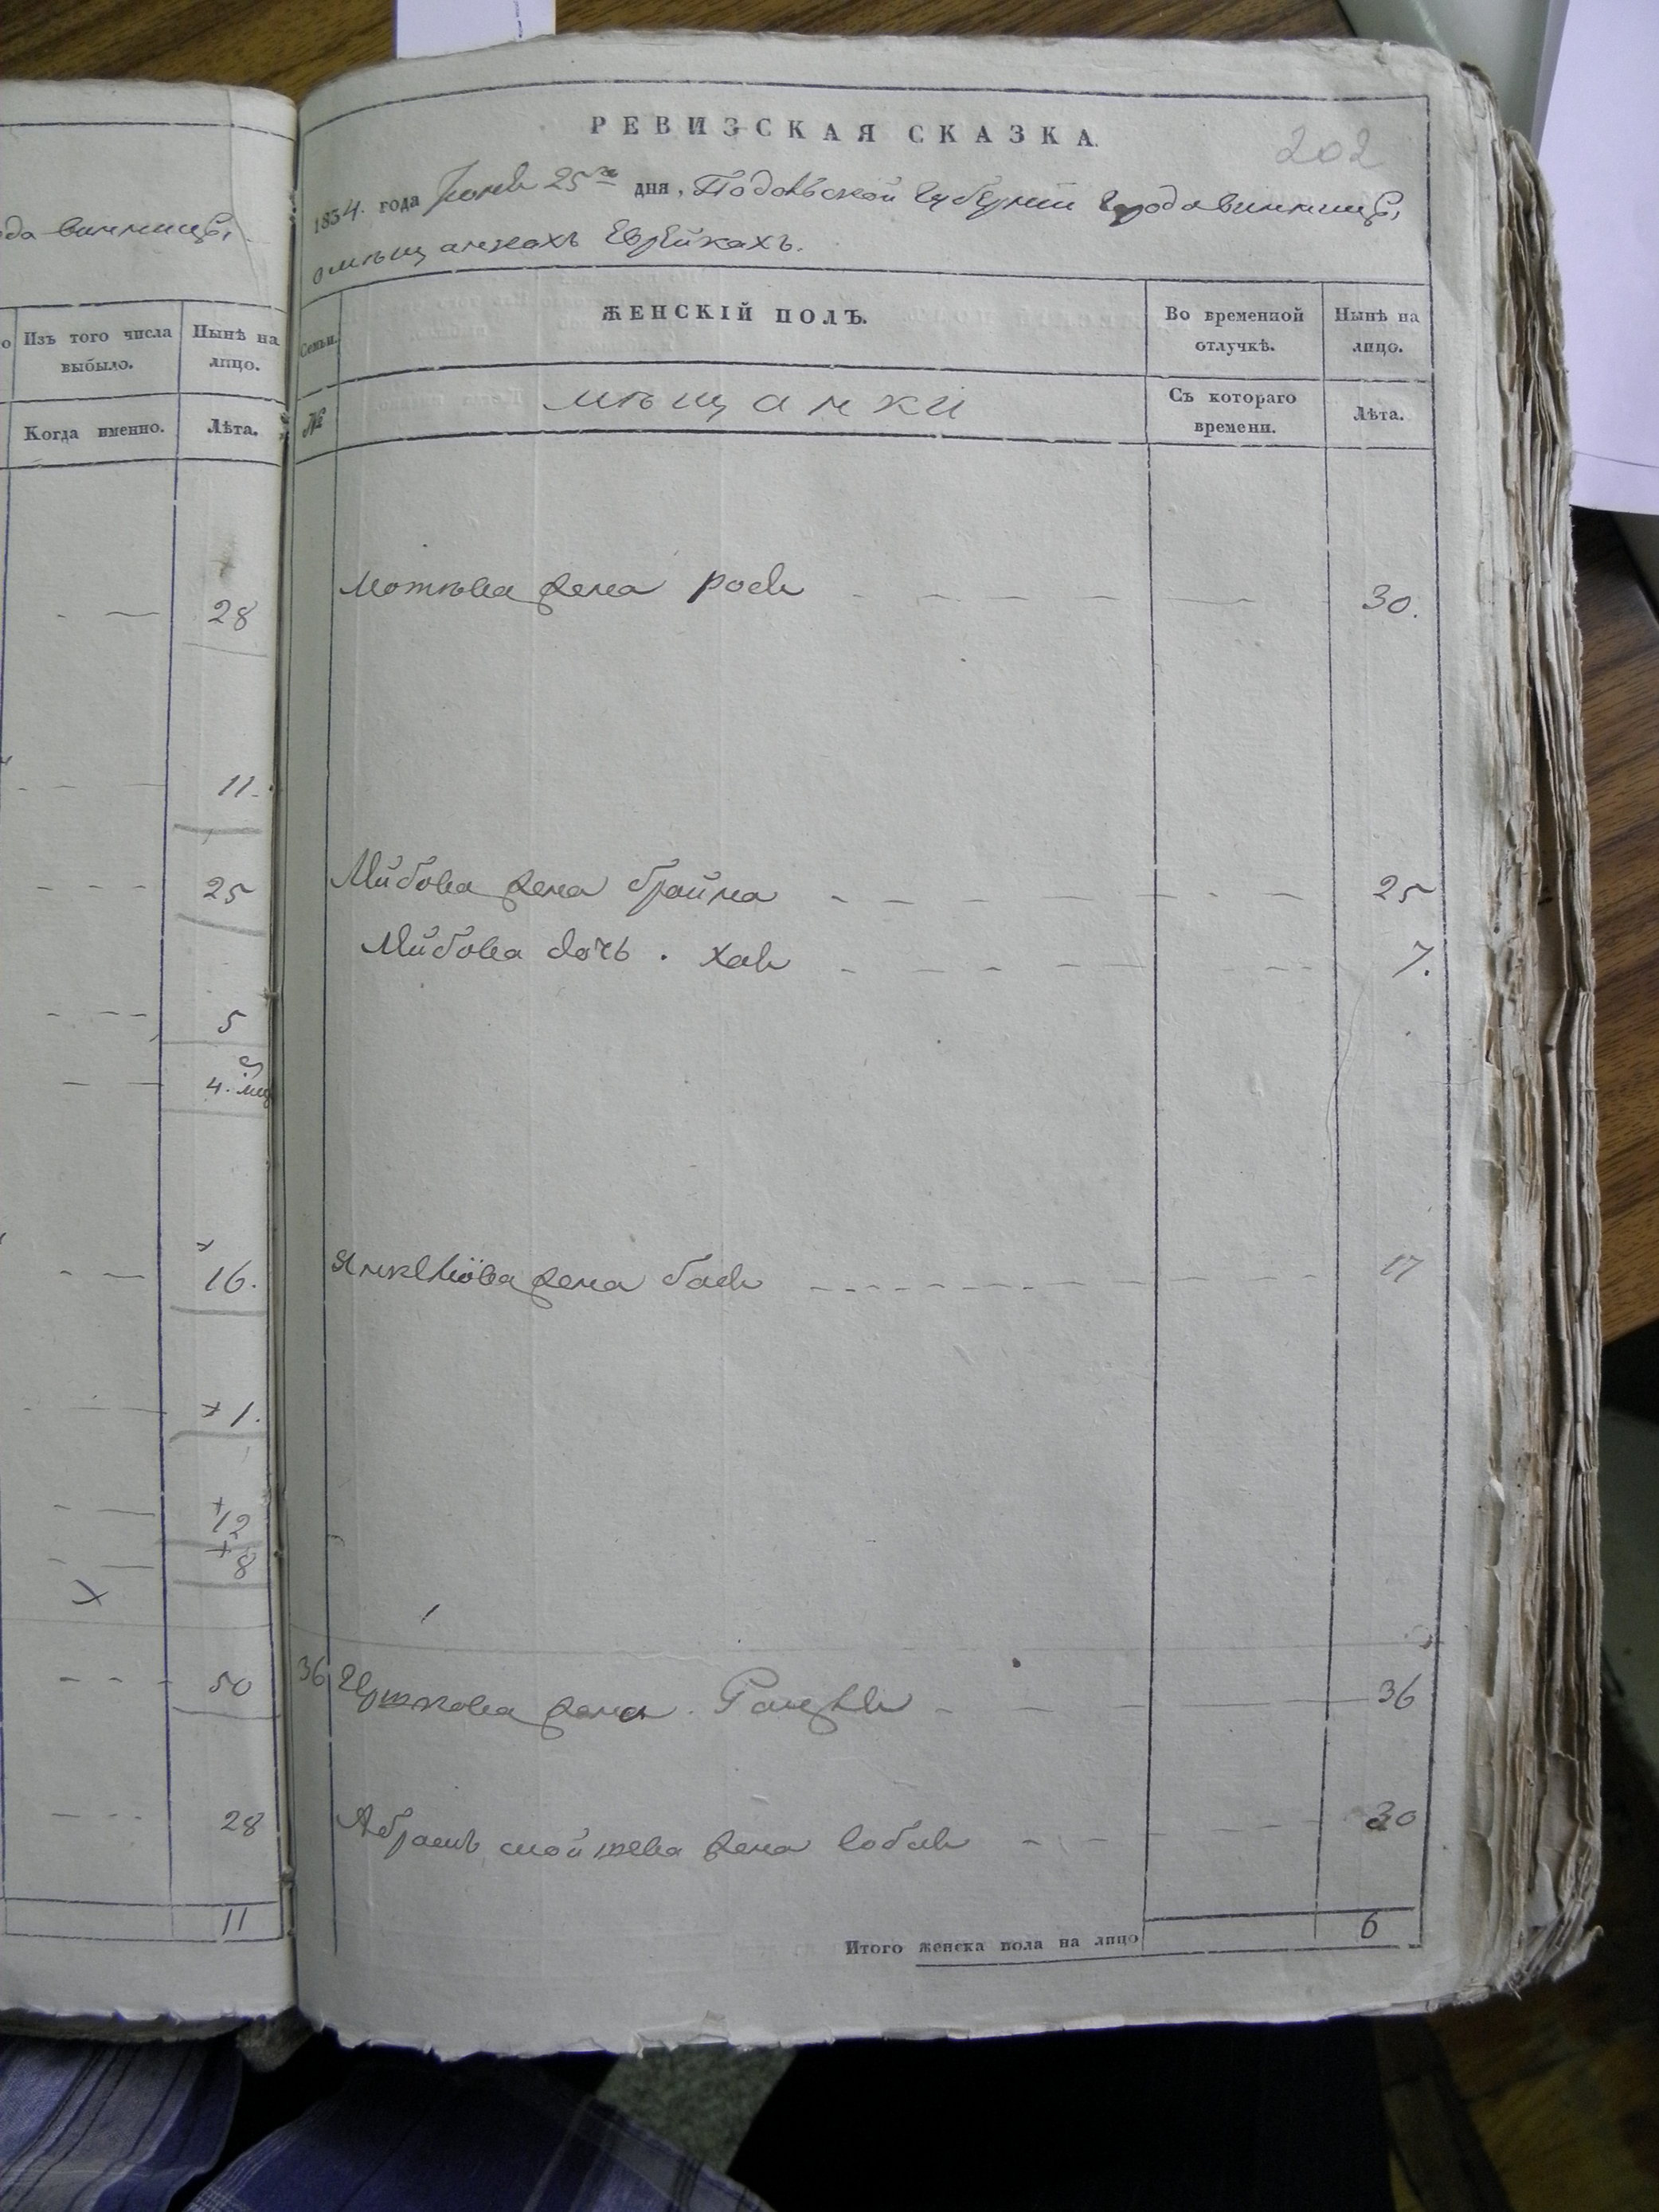 да винницы,
Изъ того числа выбыло.
Нынѣ на лицо.
Когда именно.
Лѣта.
28
11.
25
5
4.
16.
1.
12
8
50
28
11
РЕВИЗСКАЯ СКАЗКА.
202
1834. года Июня 25го дня, Подольской губернии города винницы,
о мѣщанкахъ Еврейкахъ.
Семьи.
ЖЕНСКІЙ ПОЛЪ.
Во временной отлучкѣ.
Нынѣ на лицо.
№
мѣщанки
Съ котораго времени.
Лѣта.
Мотьева жена рося 30.
Лейбова жена брайна 25
Лейбова дочь. хая 7.
Янкелiова жена бася 17
36 Гершкова жена. 36
Абрамъ мойшева жена собля 30
Итого женска пола на лицо 6